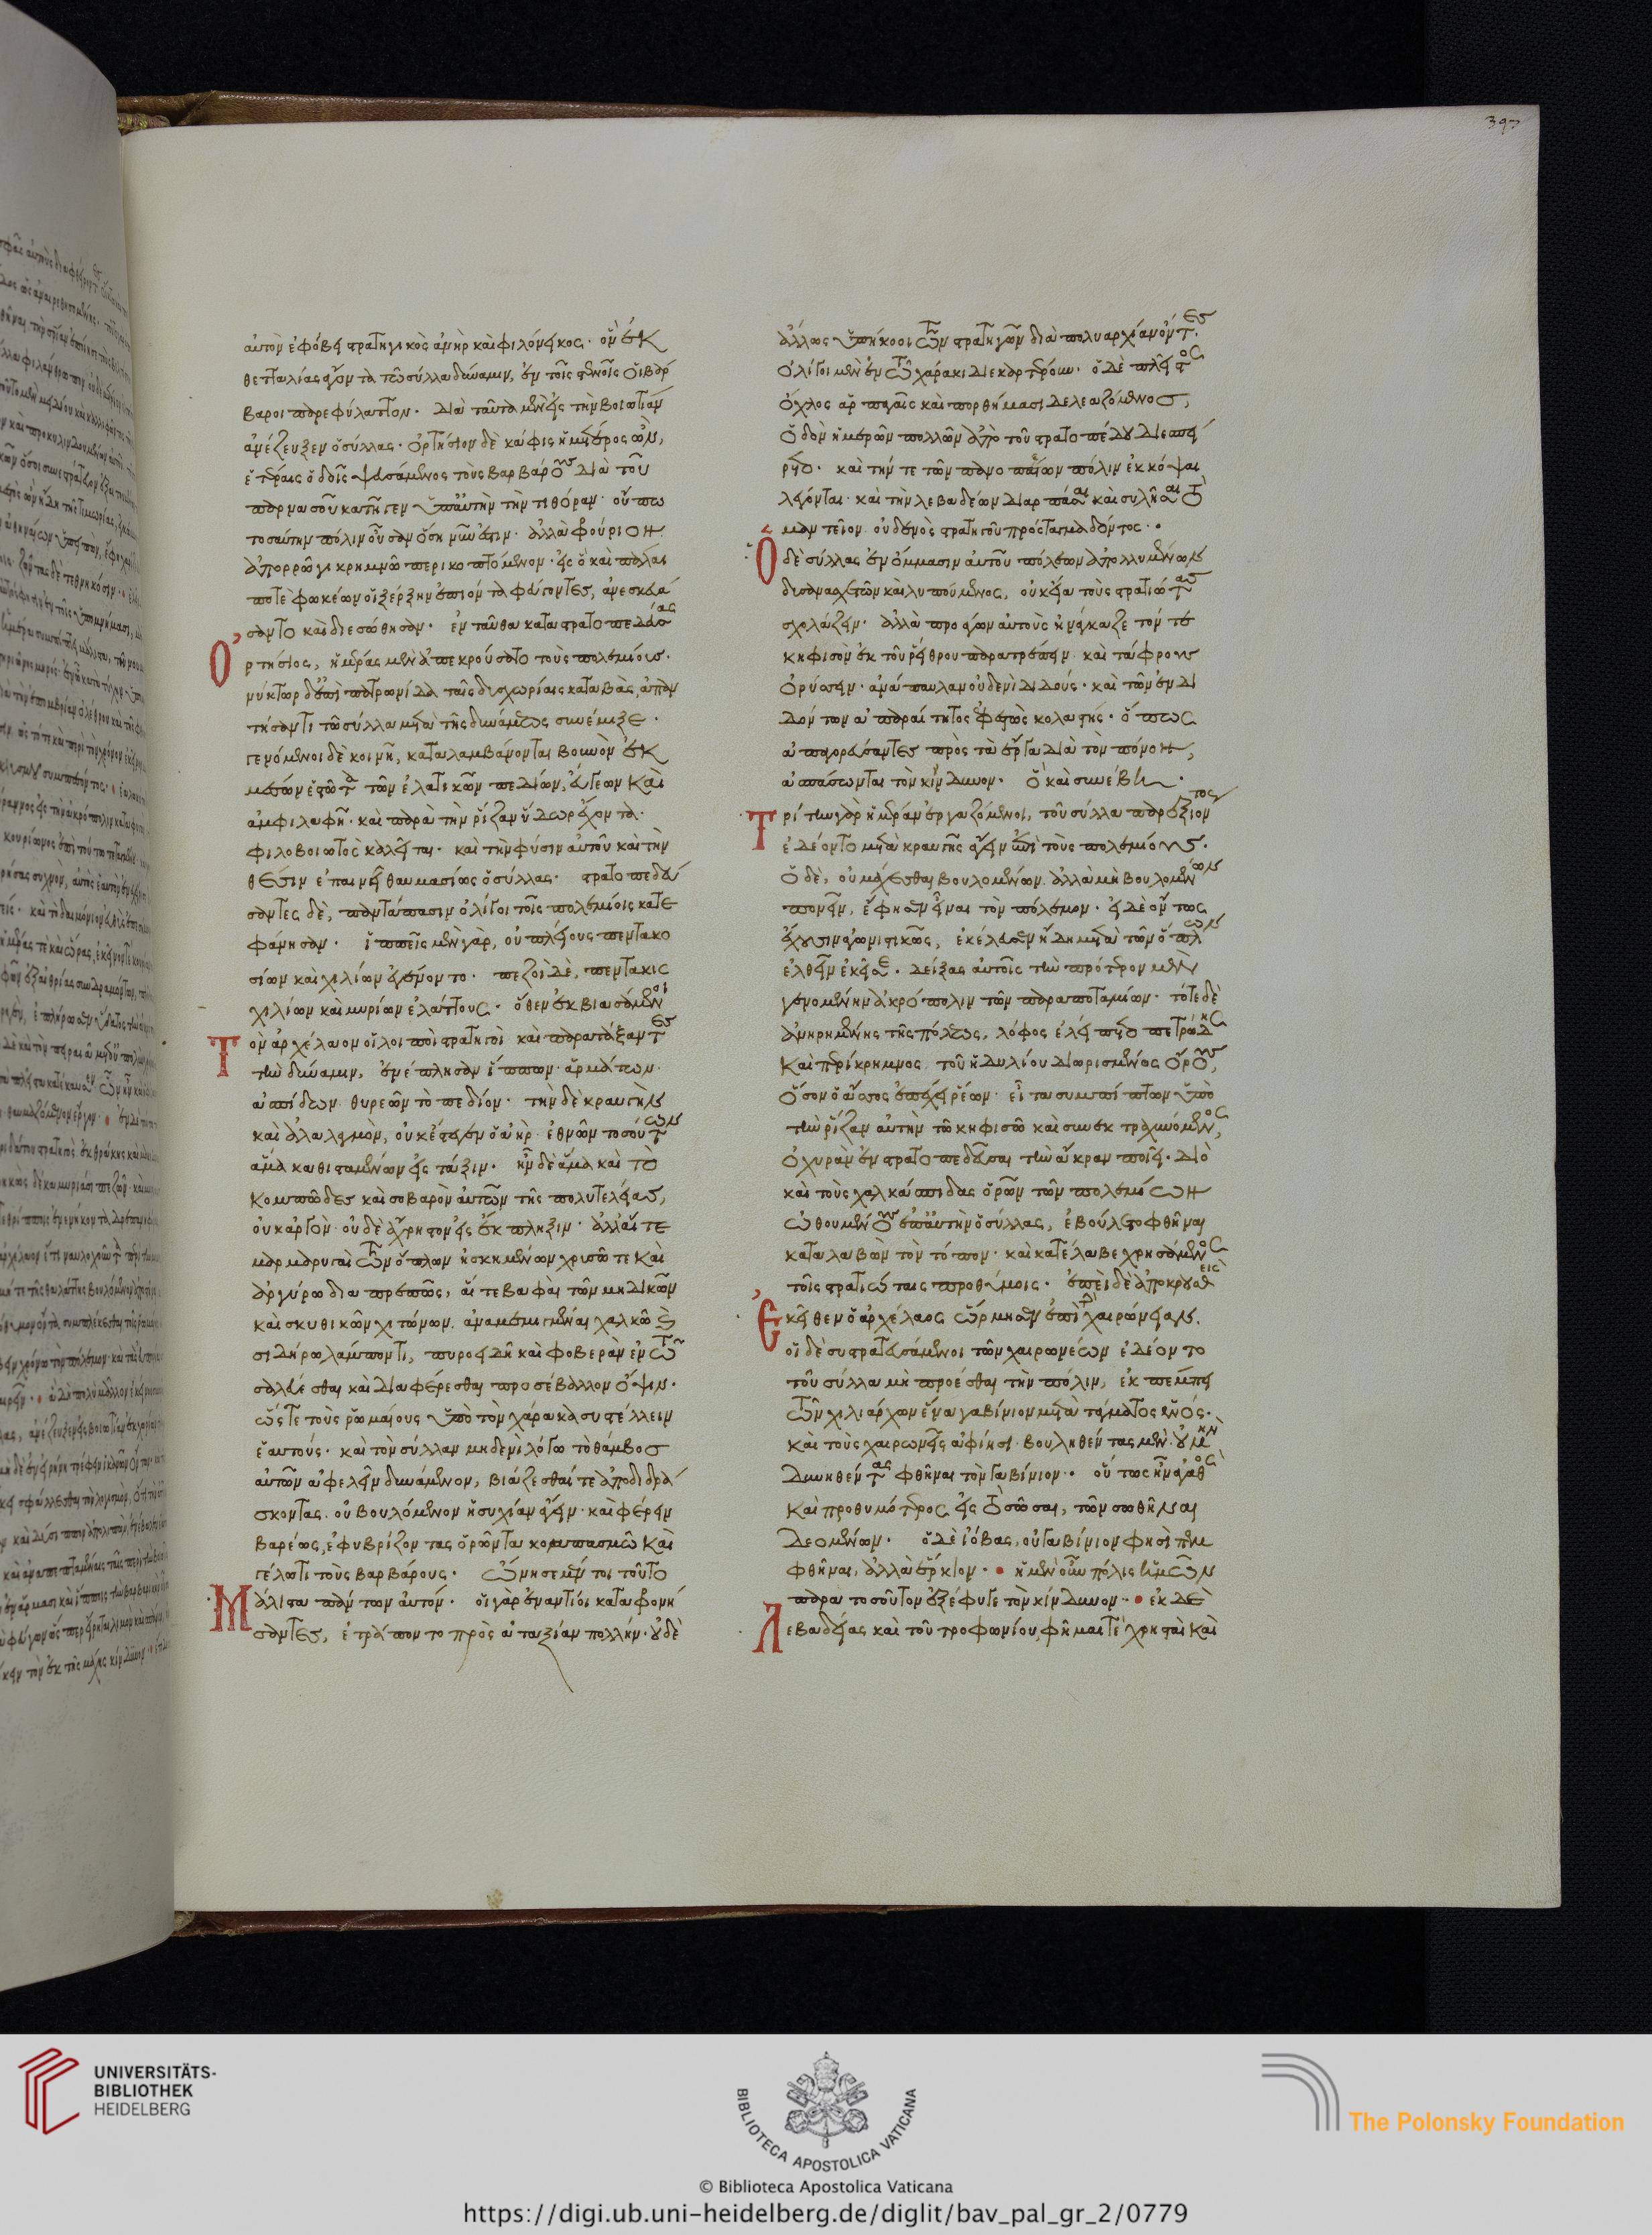 αὐτὸν ἐφόβει στρατηγικὸς ἀνὴρ καὶ φιλόνεικος· ὃν ἐκ
θετταλίας ἄγοντα τῶ σύλλα δύναμιν, ἐν τοῖς στενοῖς οἱ βάρ
βαροι παρεφύλαττον. διὰ ταῦτα μὲν εἰς τὴν βοιωτίαν
ἀνέζευξεν ὁ σύλλας. ὁρτήσιον δὲ κάφις ἡμέτερος ὢν,
ἑτέραις ὁδοῖς ψευσάμενος τοὺς βαρβάρους διὰ τοῦ
παρνασοῦ κατῆγεν ὑπ' αὐτὴν τὴν τιθόραν· οὔπω
τοσαύτην πόλιν οὖσαν ὅση νῦν ἐστιν· ἀλλὰ φρούριον
ἀπορρῶγι κρημνῶ περικοπτόμενον· εἰς ὃ καὶ πάλαι
ποτὲ φωκέων οἱ ξέρξην ἐπιόντα φεύγοντες, ἀνεσκευά
σαντο καὶ διεσώθησαν. ἐνταῦθα καταστρατοπεδεύσας
Ὁρτήσιος, ἡμέρας μὲν ἀπεκρούσατο τοὺς πολεμίους·
νύκτωρ δ' ἐπὶ πατρωνίδα ταῖς δυσχωρίαις καταβὰς, ἀπαν
τήσαντι τῶ σύλλα μετὰ τῆς δυνάμεως συνέμιξε.
γενόμενοι δὲ κοινῆ, καταλαμβάνονται βουνὸν ἐκ
μέσων ἑστῶτα τῶν ἐλατικῶν πεδίων, εὔγεων καὶ
ἀμφιλαφῆ· καὶ παρὰ τὴν ῥίζαν ὕδωρ ἔχοντα·
φιλοβοιωτὸς καλεῖται· καὶ τὴν φύσιν αὐτοῦ καὶ τὴν
θέσιν ἐπαινεῖ θαυμασίως ὁ σύλλας. στρατοπεδεύ
σαντες δὲ, παντάπασιν ὀλίγοι τοῖς πολεμίοις κατε
φάνησαν. ἱππεῖς μὲν γὰρ, οὐ πλείους πεντακο
σίων καὶ χιλίων ἐγένοντο. πεζοὶ δὲ, πεντακισ
χιλίων καὶ μυρίων ἐλάττους. ὅθεν ἐκβιασάμενοι
Τὸν ἀρχέλαον οἱ λοιποὶ στρατηγοὶ καὶ παρατάξαντες
τὴν δύναμιν, ἐνέπλησαν ἵππων· ἁρμάτων·
ἀσπίδων· θυρεῶν τὸ πεδίον. τὴν δὲ κραυγὴν
καὶ ἀλαλαγμὸν, οὐκ ἔστεγεν ὁ ἀὴρ ἐθνῶν τοσούτων
ἅμα καθισταμένων εἰς τάξιν. ἦν δὲ ἅμα καὶ τὸ
κομπῶδες καὶ σοβαρὸν αὐτῶν τῆς πολυτελείας,
οὐκ ἀργὸν· οὐδὲ ἄχρηστον εἰς ἔκπληξιν· ἀλλ' αἵ τε
μαρμαρυγαὶ τῶν ὅπλων ἠσκημένων χρυσῶ τε καὶ
ἀργύρω διαπρεπῶς, αἵ τε βαφαὶ τῶν μηδικῶν
καὶ σκυθικῶν χιτώνων ἀναμεμιγμέναι χαλκῶ καὶ
σιδήρω λάμποντι, πυροειδῆ καὶ φοβερὰν ἐν τῶ
σαλεύεσθαι καὶ διαφέρεσθαι προσέβαλλον ὄψιν·
ὥστε τοὺς ῥωμαίους ὑπὸ τὸν χάρακα συστέλλειν
ἑαυτούς· καὶ τὸν σύλλαν μηδενὶ λόγω τὸ θάμβος
αὐτῶν ἀφελεῖν δυνάμενον, βιάζεσθαί τε ἀποδιδρά
σκοντας οὐ βουλόμενον ἡσυχίαν ἄγειν· καὶ φέρειν
βαρέως, ἐφυβρίζοντας ὁρῶντα κομπασμῶ καὶ
γέλωτι τοὺς βαρβάρους. ὤνησε μέντοι τοῦτο
Μάλιστα πάντων αὐτόν. οἱ γὰρ ἐναντίοι καταφρονή
σαντες, ἐτράποντο πρὸς ἀταξίαν πολλήν· οὐδὲ
397
ἄλλως ὑπήκοοι τῶν στρατηγῶν διὰ πολυαρχίαν ὄντες.
ὀλίγοι μὲν ἐν τῶ χάρακι διεκαρτέρουν. ὁ δὲ πλεῖστος
ὄχλος ἁρπαγαῖς καὶ πορθήμασι δελεαζόμενος,
ὁδὸν ἡμερῶν πολλῶν ἀπὸ τοῦ στρατοπέδου διεσπεί
ρετο. καὶ τήν τε τῶν πανοπαίων πόλιν ἐκκόψαι
λέγονται· καὶ τὴν λεβαδέων διαρπάσαι καὶ συλῆσαι τὸ
μαντεῖον οὐδενὸς στρατηγοῦ πρόσταγμα δόντος.
Ὁ δὲ σύλλας ἐν ὄμμασιν αὐτοῦ πόλεων ἀπολλυμένων
δυσανασχετῶν καὶ λυπούμενος, οὐκ εἴα τοὺς στρατιώτας
σχολάζειν. ἀλλὰ προσάγων αὐτοὺς ἠνάγκαζε τόν τε
κηφισὸν ἐκ τοῦ ῥείθρου παρατρέπειν καὶ τάφρους
ὀρύσσειν· ἀνάπαυλαν οὐδενὶ διδούς· καὶ τῶν ἐνδι
δόντων ἀπαραίτητος ἐφεστὼς κολαστής· ὅπως
ἀπαγορεύσαντες πρὸς τὰ ἔργα διὰ τὸν πόνον,
ἀσπάσωνται τὸν κίνδυνον. ὃ καὶ συνέβη.
Τρίτην γὰρ ἡμέραν ἐργαζόμενοι, τοῦ σύλλα παρεξιόντος
ἐδέοντο μετὰ κραυγῆς ἄγειν ἐπὶ τοὺς πολεμίους.
ὁ δὲ, οὐ μάχεσθαι βουλομένων ἀλλὰ μὴ βουλομένων
πονεῖν, ἔφησεν εἶναι τὸν πόλεμον. εἰ δὲ ὄντως
ἔχουσιν ἀγωνιστικῶς, ἐκέλευσεν ἤδη μετὰ τῶν ὅπλων
ἐλθεῖν ἐκεῖσε. δείξας αὐτοῖς τὴν πρότερον μὲν
γενομένην ἀκρόπολιν τῶν παραποταμίων· τότε δὲ
ἀνηρημένης τῆς πόλεως, λόφος ἐλείπετο πετρώδης
καὶ περίκρημνος τοῦ ἡδυλίου διωρισμένος ὄρους,
ὅσον ὁ ἄσσος ἐπέχει ῥέων· εἶτα συμπίπτων ὑπὸ
τὴν ῥίζαν αὐτὴν τῶ κηφισῶ καὶ συνεκτραχυνόμενος,
ὀχυρὰν ἐνστρατοπεδεῦσαι τὴν ἄκραν ποιεῖ. διὸ
καὶ τοὺς χαλκάσπιδας ὁρῶν τῶν πολεμίων
ὠθουμένους ἐπ' αὐτὴν ὁ σύλλας, ἐβούλετο φθῆναι
καταλαβὼν τὸν τόπον· καὶ κατέλαβε χρησάμενος
τοῖς στρατιώταις προθύμοις. ἐπεὶ δὲ ἀποκρουσθεὶς
Ἐκεῖθεν ὁ ἀρχέλαος ὥρμησεν ἐπὶ χαιρώνειαν,
οἱ δὲ συστρατευσάμενοι τῶν χαιρωνέων ἐδέοντο
τοῦ σύλλα μὴ προέσθαι τὴν πόλιν, ἐκπέμπει
τῶν χιλιάρχων ἕνα γαβίνιον μετὰ τάγματος ἑνός·
καὶ τοὺς χαιρωνεῖς ἀφίησι βουληθέντας μὲν οὐ μὴν
δυνηθέντας φθῆναι τὸν γαβίνιον. οὕτως ἦν ἀγαθὸς
καὶ προθυμότερος εἰς τὸ σῶσαι, τῶν σωθῆναι
δεομένων. ὁ δὲ ἰόβας, οὐ γαβίνιον φησὶ πεμ
φθῆναι, ἀλλὰ ἐρίκιον. ἡ μὲν οὖν πόλις ἡμῶν
παρὰ τοσοῦτον ἐξέφυγε τὸν κίνδυνον. ἐκ δὲ
Λεβαδείας καὶ τοῦ τροφωνίου φῆμαί τε χρησταὶ καὶ
UNIVERSITÄTS-
BIBLIOTHEK
HEIDELBERG
BIBLIOTECA APOSTOLICA VATICANA
The Polonsky Foundation
© Biblioteca Apostolica Vaticana
https://digi.ub.uni-heidelberg.de/diglit/bav_pal_gr_2/0779